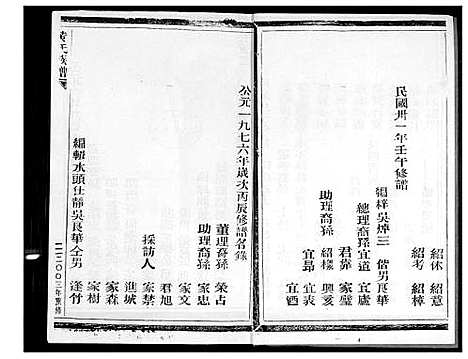 民國卅一年壬午修譜
紹休 紹意
紹考 紹樟
梓吳焯三 偕男良華
總理裔孫宜道 宜廬
君彝 家璧
助理裔孫 紹樑 興亥
宜昂 宜表 宜酒
公元一九七六年歲次丙辰修譜名錄
董理裔孫 榮占
助理裔孫 家忠
家文
君旭
採訪人 家禁
進城
家森
家樹
編輯水頭仕靜吳良華仝男 逢竹